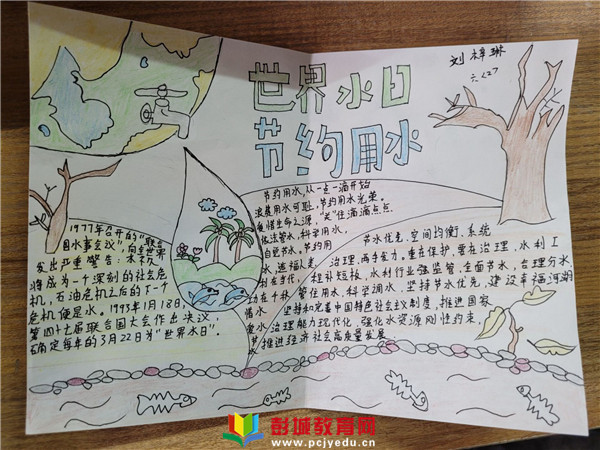 世界水日
节约用水
刘梓琳
六(2)
1977年召开的"联合
国水事会议",向全世界
发出严重警告:水不久
将成为一个深刻的社会危
机,石油危机之后的下一个
危机便是水。1993年1月18日,
第四十七届联合国大会作出决议,
确定每年的3月22日为"世界水日"。
节约用水,从一点一滴开始
浪费用水可耻,节约用水光荣。
珍惜生命之源,"关"住滴滴点点
依法管水,科学用水,
自觉节水。节约用
水,造福人类,
利在当代,
功在千秋
惜水
爱水
节水
节水优先、空间均衡、系统
治理、两手发力,重在保护,要在治理,水利工
程补短板,水利行业强监管,全面节水,合理分水
管住用水,科学调水,坚持节水优先,建设幸福河湖
坚持和完善中国特色社会主义制度,推进国家
治理能力现代化,强化水资源刚性约束,
推进经济社会高质量发展
彭城教育网
www.pcjyedu.cn